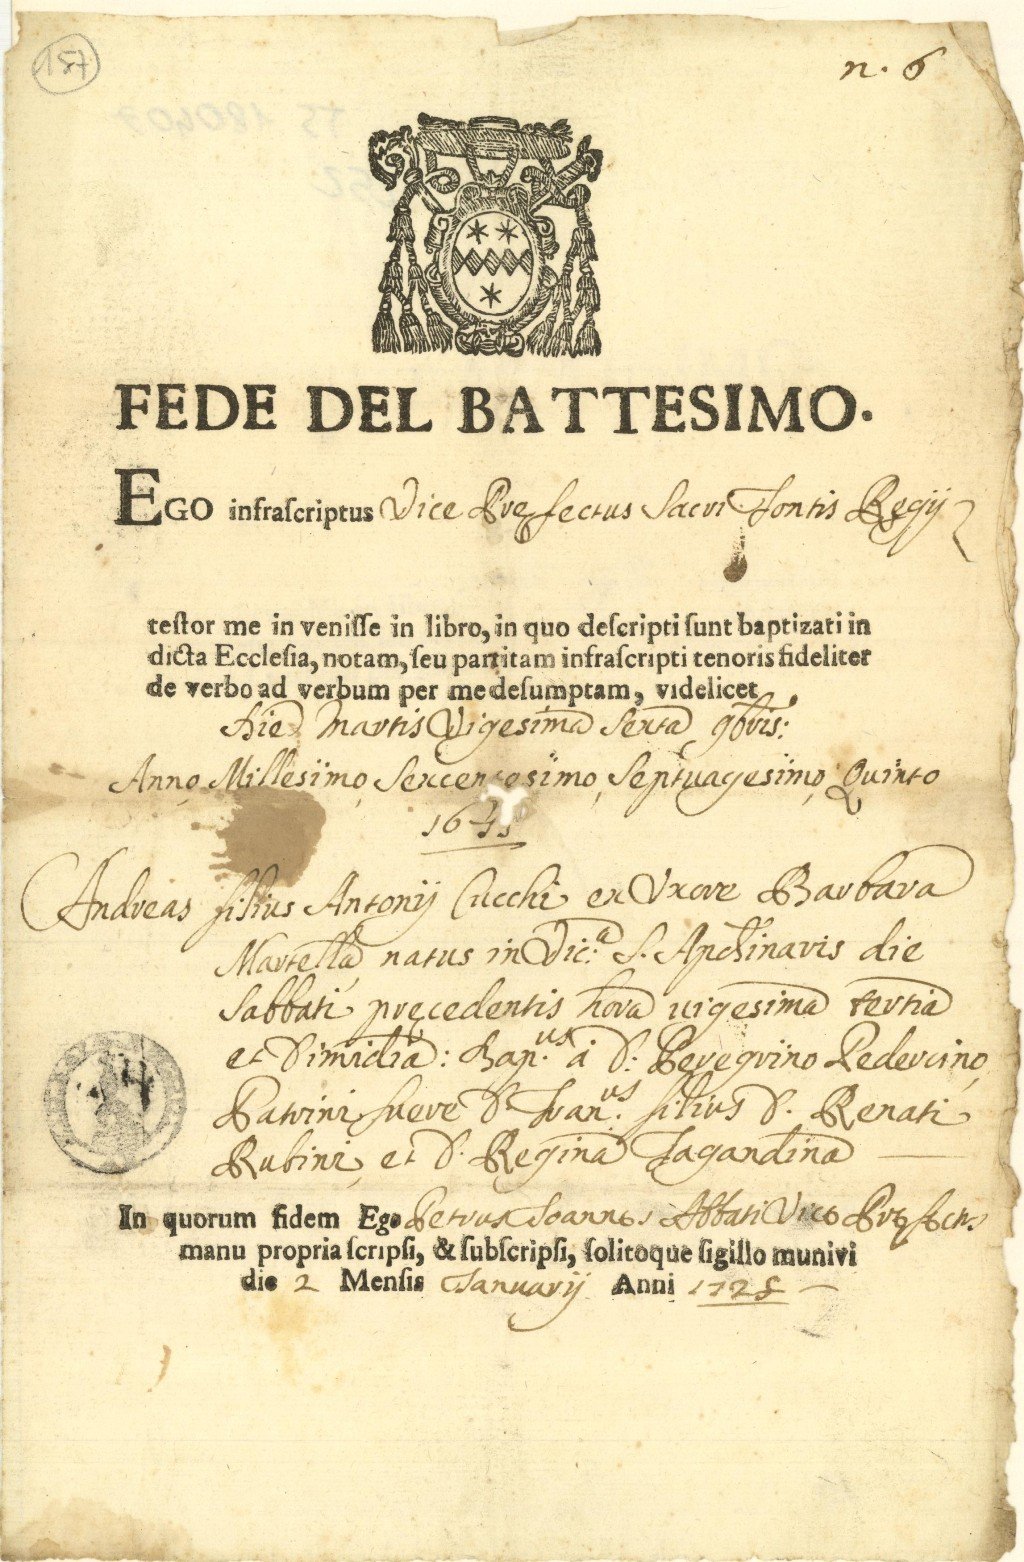 157
n. 6
FEDE DEL BATTESIMO.
EGO infraſcriptus Vice Prefectus Sacri Fontis Regij
teſtor me in veniſſe in libro, in quo deſcripti ſunt baptizati in
dicta Eccleſia, notam, ſeu partitam infraſcripti tenoris fideliter
de verbo ad verbum per me deſumptam, videlicet
Die Martis Vigesima Sexta 9bris:
Anno Millesimo, Sexcentesimo, Septuagesimo, Quinto
Andreas filius Antonij Cucchi ex Uxore Barbara
Martella natus in Vic.a S. Apolinaris die
Sabbati precedentis hora uigesima tertia
et Dimidia: Bap.us à D. Peregrino Pedercino,
Patrini fuere D. Fran.us filius D. Renati
Rubini, et D. Regina Fagandina
In quorum fidem Ego Petrus Joannes Abbati Vice Prefect.
manu propria ſcripſi, & ſubſcripſi, ſolitoque ſigillo munivi
die 2 Menſis Januarij Anni 1725